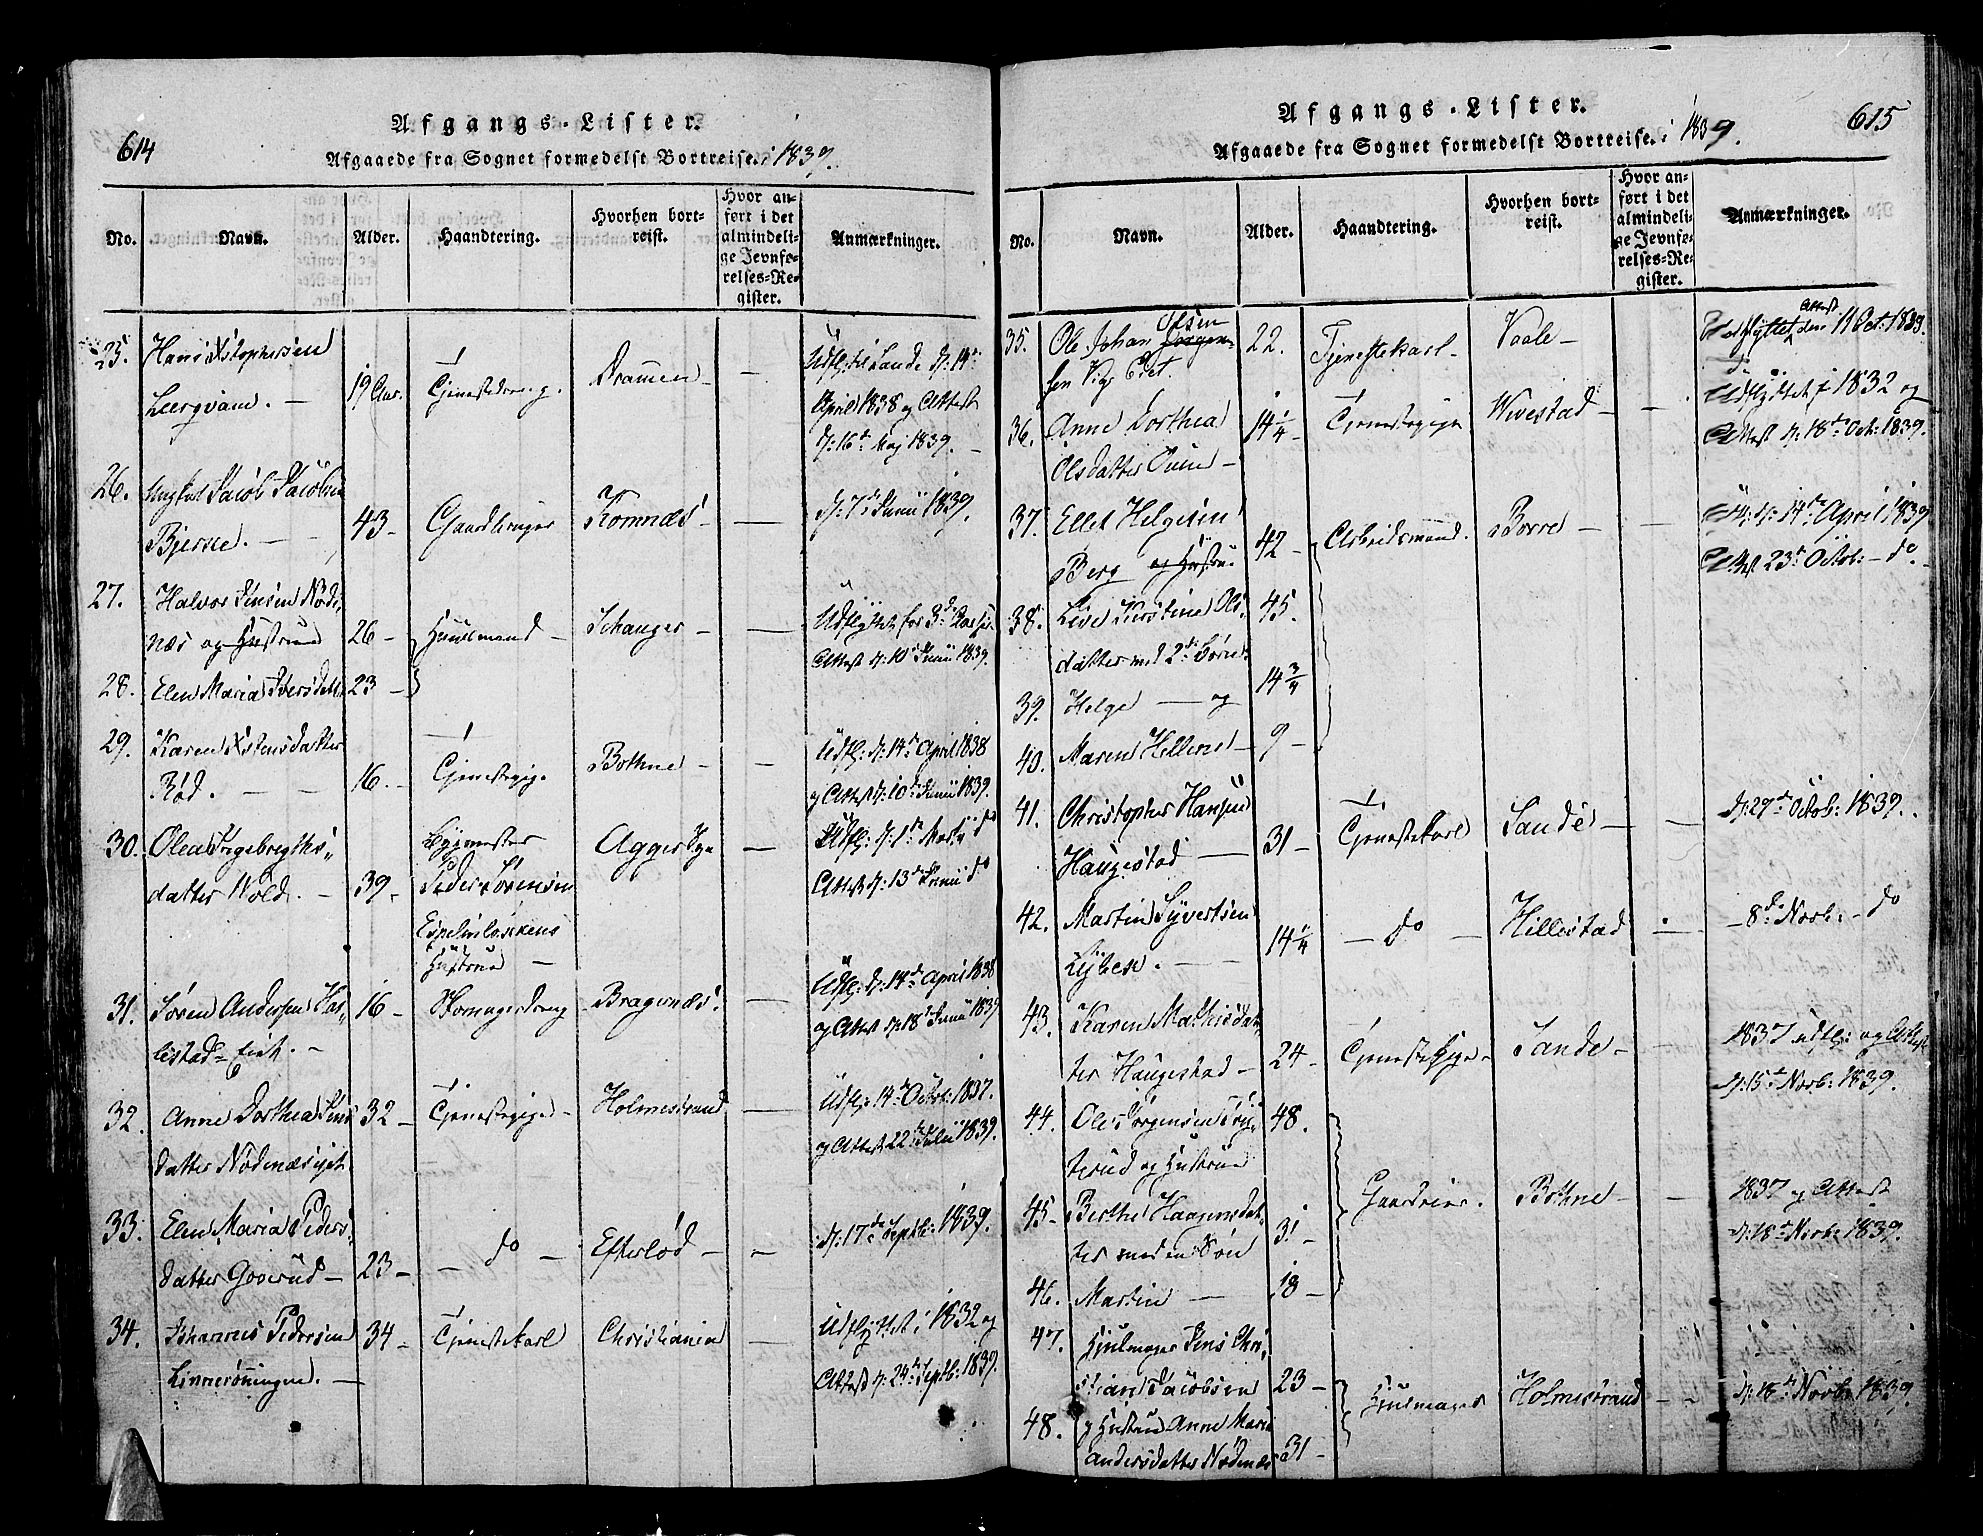 614
Afgangs-Lister.
Afgaaede fra Sognet formedelst Bortreise. i 1839.
No.
Navn.
Alder.
Haandtering.
Hvorhen bort-
reist.
Hvor an-
ført i det
almindeli-
ge Jevnfø-
relses-Re-
gister.
Anmærkninger.
25. Hans Xstophersen
Leergvam. — 19 Aar. Tjenestedreng. Dramen — — Udfl: til Sande d: 14de
April 1838 og Attest
d: 16de Maj 1839. —
26. Jacob Jacobsen
Bjerke. — — 43 — Gaardbruger Komnæs — — d: 7de Junii 1839.
27. Halvor Jensen Nøds-
næs og Hustrue 26 — Huusmand — Schauger — — Udflyttet for 3de Aar
Attest d: 10de Junii 1839.
28. Elen Maria Iversdatt: 23 —
29. Karen Xstensdatter
Rød. — — 16. — Tjenestepige Bothne — — Udfl: d: 14de April 1838
og Attest d: 10de Junii 1839.
30. Olea Ingebregths-
datter Wold. — 39 —
Peder Sørensen
Hustrue —
Aggers — Udfl: d: 1de Martii do
Attest d: 13de Junii do
31. Søren Andersen Hal-
lestad-Eiet. — 16 — Skomagerdreng Bragernæs. — Udfl: d: 14de April 1838
og Attest d: 18de Junii 1839
32. Anne Dorthea Jens
datter Nødenæsejet 32 — Tjenestepige — Holmestrand — Udfl: 14de Octob: 1837.
og Attest 22de Julii 1839.
33. Elen Maria Peders-
datter Gooerud — 23 — — do — Efteløt — — d: 17de Septb: 1839.
34. Johannes Pedersen
Linnerønningen. — 34 — Tjenestekarl Christiania — Udflyttet i 1832 og
Attest d: 24de Septb: 1839.
615
Afgangs-Lister.
Afgaaede fra Sognet formedelst Bortreise. i 1839.
No.
Navn.
Alder.
Haandtering.
Hvorhen bort-
reist.
Hvor an-
ført i det
almindeli-
ge Jevnfø-
relses-Re-
gister.
Anmærkninger.
35. Ole Johan Jørgen- Olsen
sen Vigs Eiet 22. Tjenestekarl — Vaale — Udflyttet Attest den 11 Oct: 1839.
36. Anne Dorthea
Olsdatter — 14 1/4 — Tjenestepige Wivestad — — Udflyttet i 1832 og
Attest d: 18de Octb: 1839.
37. Ellef Helgesen
Berg og Hustrue 42 — Arbeidsmand. Borre — — Udfl: d: 14de April 1839
Attest 23de Octob: — do —
38. Live Kirstine Ols-
datter med 2de Børn: 45.
39. Helge — og 14 3/4
40. Maren Hellene — 9 —
41. Christopher Hansen
Haugestad — 31 — Tjenestekarl Sande — — d: 29de Octob: 1839.
42. Martin Syvertsen
— — 14 1/4 — do — Hillestad — — 8de Novb: — do
43. Karen Mathisdat-
ter Haugestad — 24 — Tjenestepige — Sande — — 1837 udfl: og Attest
d: 15de Novb: 1839.
44. Ole Jørgensen
og Hustrue 48.
45 — Berthe Haagensdat-
ter med en Søn 31 — Gaardeier. Bothne — — 1837 og Attest
d: 18de Novb: 1839.
46. Martin — 18 —
47. Hjulmager Jens Chri-
stian Jacobsen 23 — Hjulmager Holmestrand — — d: 18de Novb: 1839.
48. og Hustrue Anne Maria
Andersdatter Nødenæs 31 —